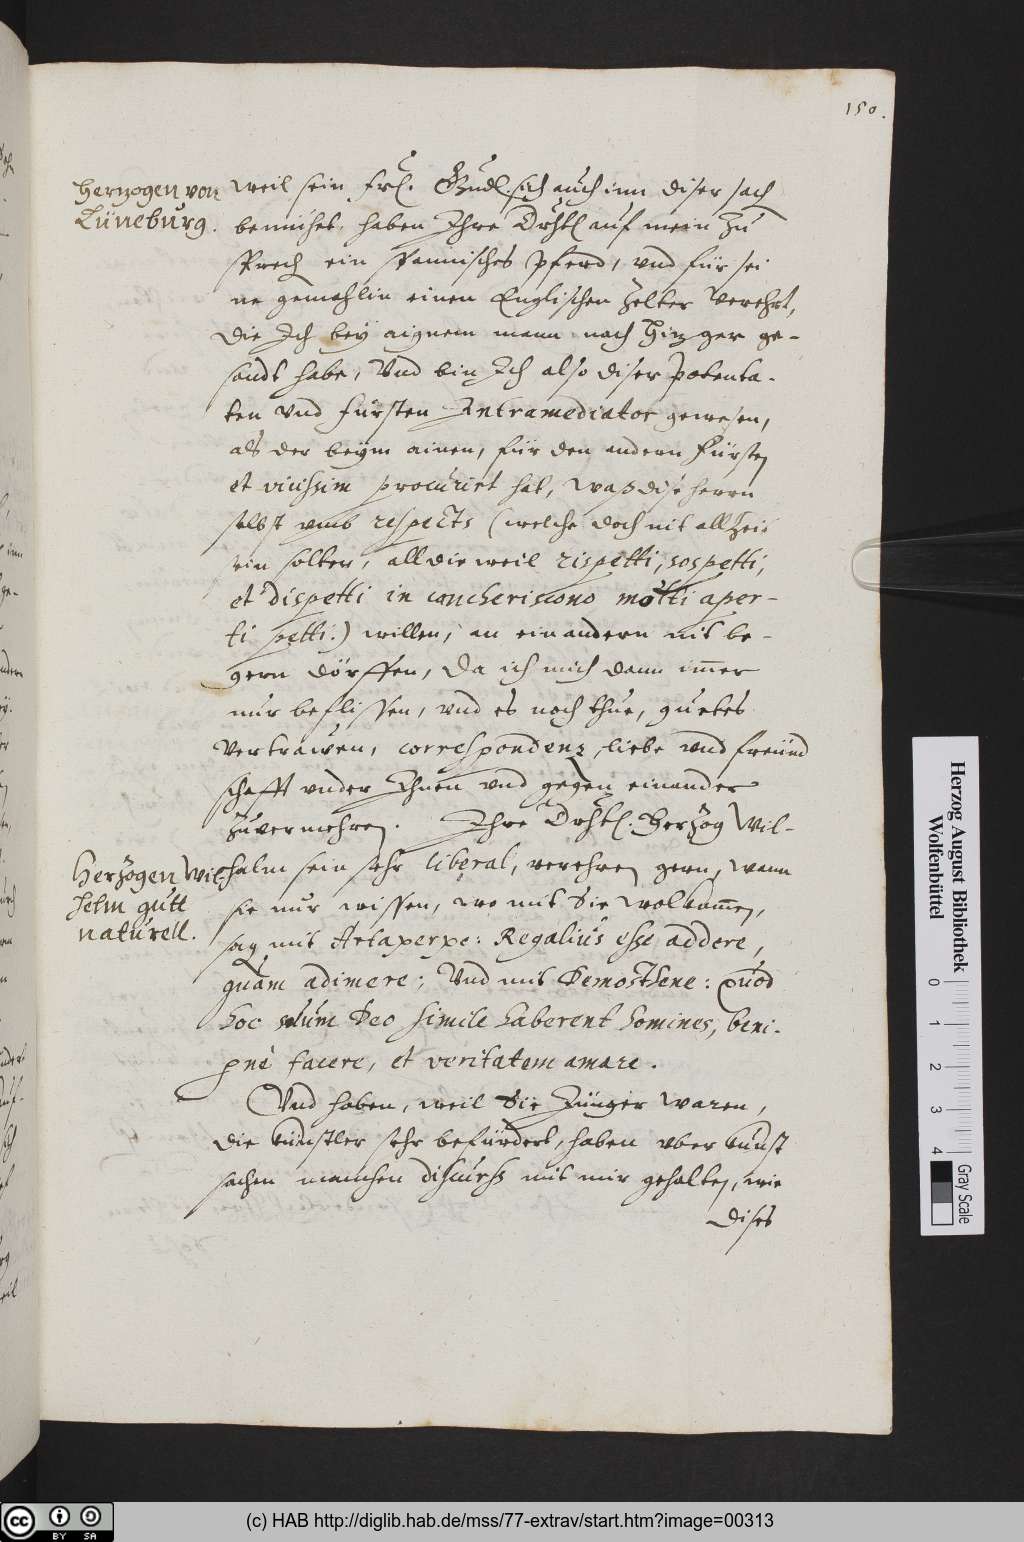 150.
Herzogen von
Lüneburg.
weil sein frl. Gnd. sich auch inn diser sach
bemühet, haben Ihre Drhtl auf mein zu
sprech ein Spannisches Pferd, vnd für sei
ne gemahlin einen Englischen Zelter verehrt,
die Ich bey aignem mann nach Hizger ge-
sandt habe, Vnd bin Ich also diser Potenta-
ten vnd fürsten Intramediator gewesen,
als der beym ainen, für den andern Fürsten
et vicissim procurirt hat, was dise herrn
selbst vmb respects (welche doch nit allzeit
sein solten, alldieweil rispetti, sospetti,
et dispetti in cancheriscono molti aper-
ti petti.) willen, an ein andern nit be-
gern dörffen, da ich mich dann imer
nur beflissen, vnd es noch thue, guetes
vertrawen, correspondenz, liebe vnd freünd
schafft vnder Ihnen vnd gegen einander
zuvermehren. Ihre Drhtl. Herzog Wil-
Herzogen Wil
helm gutt
naturell.
halm sein sehr liberal, verehren gern, wann
sie nur wissen, wo mit Sie wolkomen,
sag mit Artaxerxe: Regalius esse addere,
quam adimere; Vnd mit Demosthene: quod
hoc solum Deo simile haberent homines, beni-
gnè facere, et veritatem amare.
Vnd haben, weil Sie Jünger waren,
die künstler sehr befürdert, haben vber kunst
sachen manchen discurs mit mir gehalten, wie
dises
Herzog August Bibliothek
Wolfenbüttel
0 1 2 3 4
Gray Scale
(c) HAB http://diglib.hab.de/mss/77-extrav/start.htm?image=00313
cc BY SA